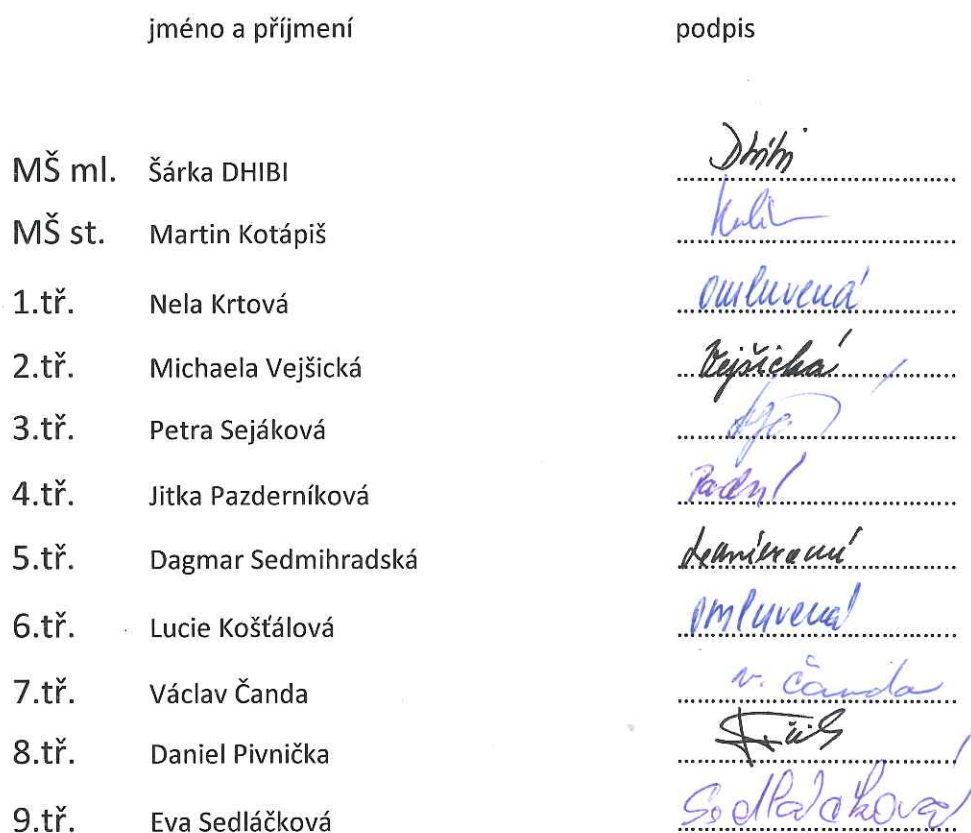 jméno a příjmení podpis
MŠ ml. Šárka DHIBI Dhibi
MŠ st. Martin Kotápiš
1.tř. Nela Krtová omluvená
2.tř. Michaela Vejšická Vejšická
3.tř. Petra Sejáková
4.tř. Jitka Pazderníková
5.tř. Dagmar Sedmihradská
6.tř. Lucie Košťálová omluvená
7.tř. Václav Čanda V. Čanda
8.tř. Daniel Pivnička
9.tř. Eva Sedláčková Sedláčková